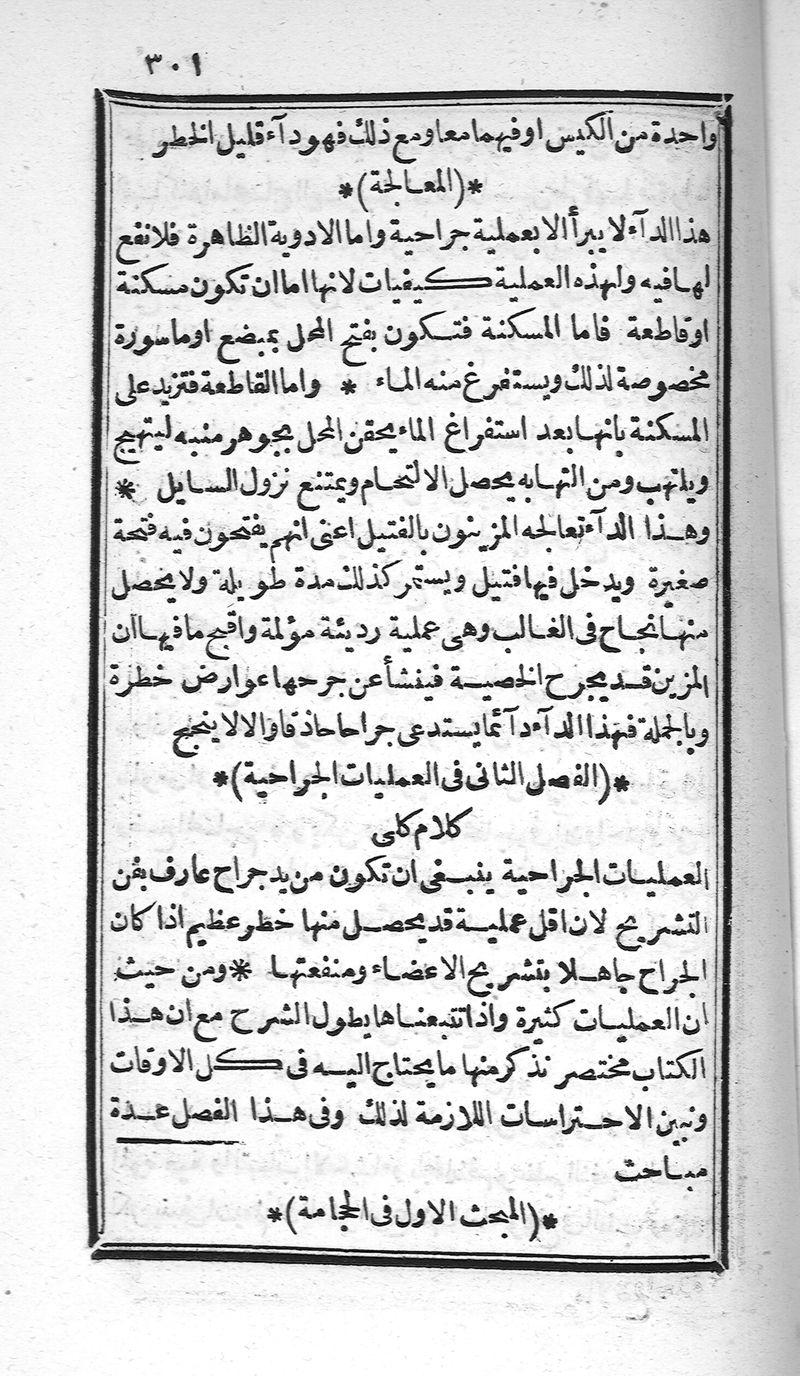 ٣٠١
واحدة من الكيس او فيهما معا ومع ذلك فهو دآء قليل الخطر
*(المعالجة)*
هذا الدآء لا يبرأ الا بعملية جراحية واما الادوية الظاهرة فلا نفع
لها فيه ولهذه العملية كيفيات لانها اما ان تكون مسكنة
او قاطعة فاما المسكنة فتكون بفتح المحل بمبضع او ماسورة
مخصوصة لذلك ويستفرغ منه الماء * واما القاطعة فتزيد على
المسكنة بانها بعد استفراغ الماء يحقن المحل بجوهر منبه ليتهيج
ويلتهب ومن التهابه يحصل الالتحام ويمتنع نزول السايل *
وهذا الدآء تعالجه المزينون بالفتيل اعنى انهم يفتحون فيه فتحة
صغيرة ويدخل فيها فتيل ويستمر كذلك مدة طويلة ولا يحصل
منها نجاح فى الغالب وهى عملية رديئة مؤلمة واقبح ما فيها ان
المزين قد يجرح الخصية فينشأ عن جرحها عوارض خطرة
وبالجملة فهذا الدآء دآئما يستدعى جراحا حاذقا والا لا ينجح
*(الفصل الثانى فى العمليات الجراحية)*
كلام كلى
العمليات الجراحية ينبغى ان تكون من يد جراح عارف بفن
التشريح لان اقل عملية قد يحصل منها خطر عظيم اذا كان
الجراح جاهلا بتشريح الاعضاء ومنفعتها * ومن حيث
ان العمليات كثيرة واذا تتبعناها يطول الشرح مع ان هذا
الكتاب مختصر نذكر منها ما يحتاج اليه فى كل الاوقات
ونبين الاحتراسات اللازمة لذلك وفى هذا الفصل عدة
مباحث
*(المبحث الاول فى الحجامة)*